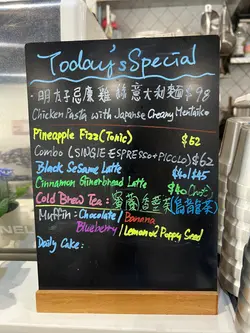 Today's Special
· 明太子忌廉雞絲意大利麵 $98
Chicken Pasta with Japanse Creamy Mentaiko
Pineapple Fizz (Tonic) $52
Combo (SINGlE ESPRESSO + PICOLO) $62
Black SeSame Latte $40/$45
Cinnamon Ginerbread Latte $40 (hot)
Cold Brew Tea: 蜜蘭香單萃 (烏龍茶)
Muffin: Chocolate / Banana
Blueberry / Lemon & Poppy Seed
Daily Cake: